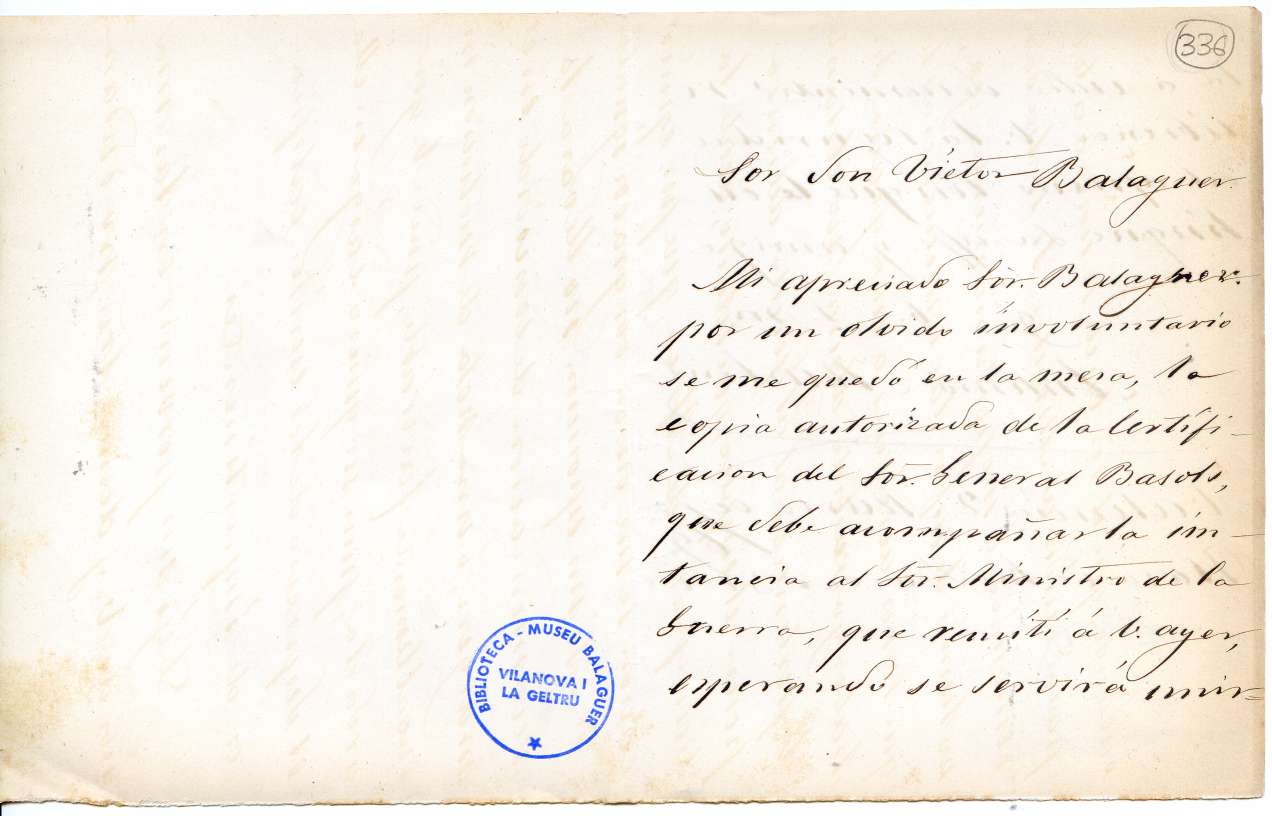 336
Sor Don Victor Balaguer.
Mi apreciado Sor. Balaguer.
por un olvido involuntario
se me quedó en la mesa, la
copia autorizada de la Certifi-
cacion del Sor. General Basols,
que debe acompañar la ins-
tancia al Sor. Ministro de la
Guerra, que remití á V. ayer,
esperando se servirá unir-
BIBLIOTECA - MUSEU BALAGUER
VILANOVA I
LA GELTRU